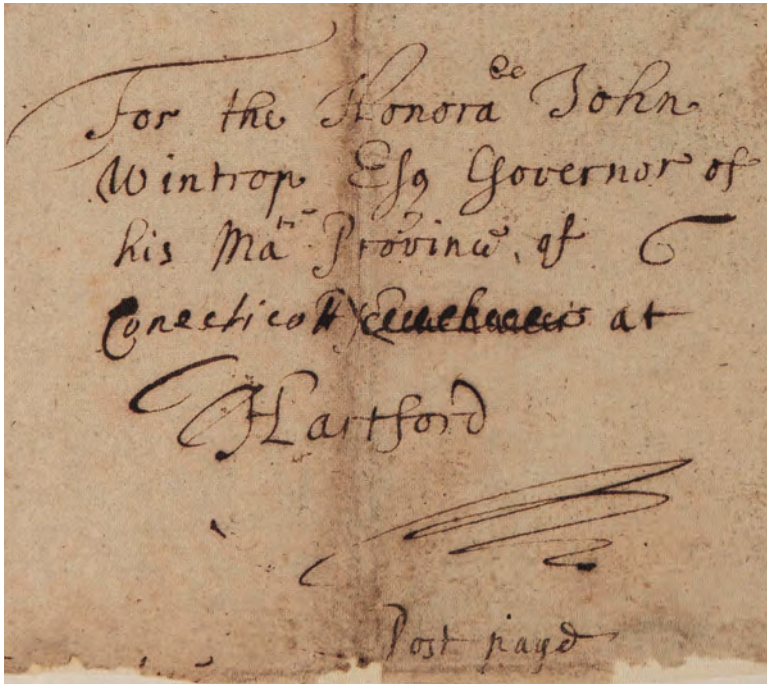 For the Honora^ble John
Wintrop Esq Governor of
his Ma^ties Province, of
Conecticott at
Hartford
Post payd